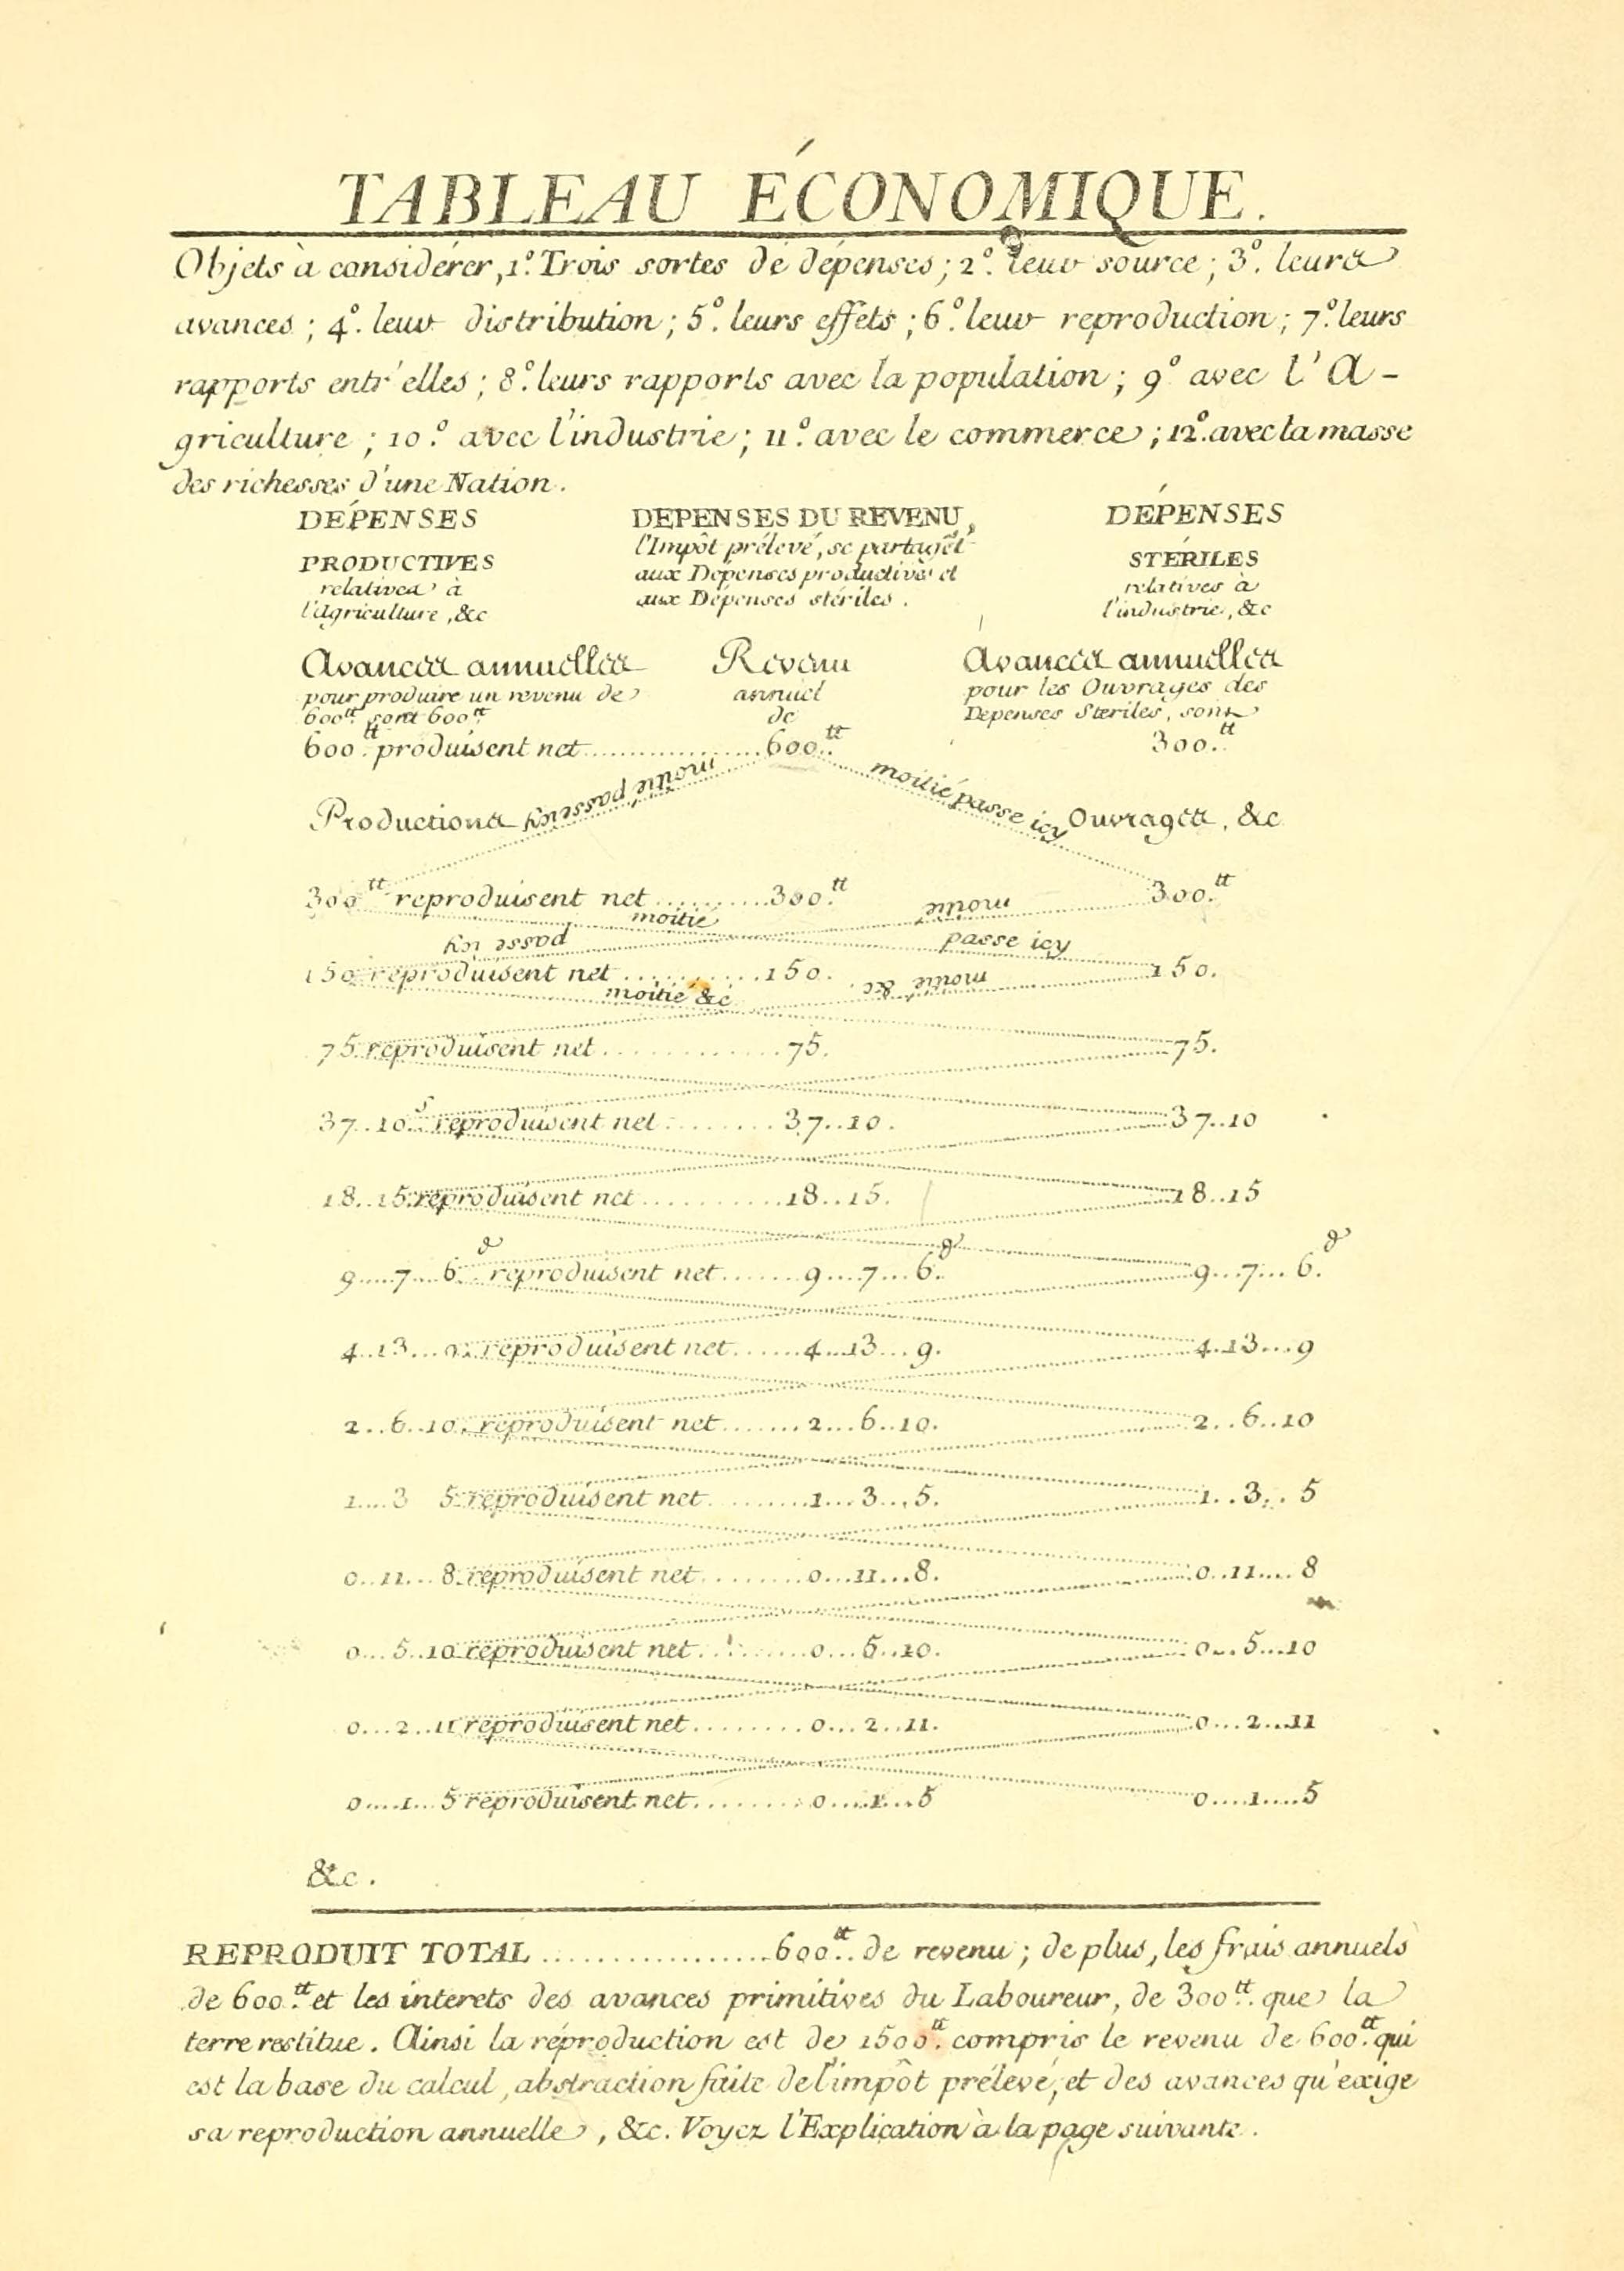 TABLEAU ÉCONOMIQUE.
Objets à considérer, 1º. Trois sortes de dépenses; 2º. leur source; 3º. leurs
avances; 4º. leur distribution; 5º. leurs effets; 6º. leur reproduction; 7º. leurs
rapports entr'elles; 8º. leurs rapports avec la population; 9º avec l'A-
griculture; 10º. avec l'industrie; 11º. avec le commerce; 12º. avec la masse
des richesses d'une Nation.
DÉPENSES DEPENSES DU REVENU, DÉPENSES
PRODUCTIVES l'Impôt prélevé, se partagêt STÉRILES
relatives à aux Dépenses productives et relatives à
l'agriculture, &c aux Dépenses stériles. l'industrie, &c
Avances annuelles Revenu Avances annuelles
pour produire un revenu de annuel pour les Ouvrages des
600tt sont 600tt de Dépenses Stériles, sont
600tt produisent net..............600tt 300.tt
moitié passe icy moitié passe icy
Productions Ouvrages, &c
300tt reproduisent net..........300.tt 300.tt
moitié moitié
passe icy passe icy
150 reproduisent net..........150. 150.
moitié &c moitié, &c
75 reproduisent net............75. 75.
37..10s reproduisent net........37..10. 37..10
18..15 reproduisent net..........18..15. 18..15
9....7...6d reproduisent net.......9....7...6d. 9...7...6d.
4..13...9 reproduisent net......4...13...9. 4..13...9
2..6..10. reproduisent net.......2...6..10. 2..6..10
1....3 5 reproduisent net........1...3...5. 1..3..5
0..11...8 reproduisent net........0...11...8. 0..11....8
0...5..10 reproduisent net........0...5..10. 0...5...10
0...2..11 reproduisent net........0...2..11. 0...2...11
0....1...5 reproduisent net........0....1...5 0....1....5
&c.
REPRODUIT TOTAL..................600tt. de revenu; de plus, les frais annuels
de 600tt. et les interets des avances primitives du Laboureur, de 300tt. que la
terre restitue. Ainsi la réproduction est de 1500tt. compris le revenu de 600tt. qui
est la base du calcul, abstraction faite de l'impôt prélevé, et des avances qu'exige
sa reproduction annuelle, &c. Voyez l'Explication à la page suivante.